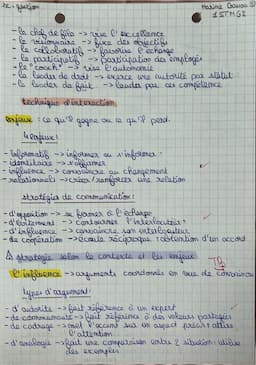 - le chef de file -> vise l'excellence
- le visionnaire -> fixe des objectifs
- le collaboratif -> favorise l'échange
- le participatif -> participation des employés
- le "coach" -> vise l'autonomie
- le leader de droit -> exerce une autorité par statut
- le leader de fait -> leader par ses compétences
technique d'interaction
enjeux : ce qu'il gagne ou ce qu'il perd.
4 enjeux :
- informatif -> informer ou s'informer
- identitaire -> s'affirmer
- influence -> convaincre au changement
- relationnels -> créer/renforcer une relation
stratégies de communication :
- d'opposition -> se fermer à l'échange
- d'évitement -> contourner l'interlocuteur
- d'influence -> convaincre son interlocuteur
- de coopération -> écoute réciproque : obtention d'un accord
stratégie selon le contexte et les enjeux
TB
l'influence -> arguments coordonnés en vue de convaincre
types d'argument :
- d'autorité -> fait référence à un expert
- de communauté -> fait référence à des valeurs partagées
- de cadrage -> met l'accent sur un aspect précis attire
l'attention
- d'analogie -> fait une comparaison entre 2 situation : utilise
des exemples